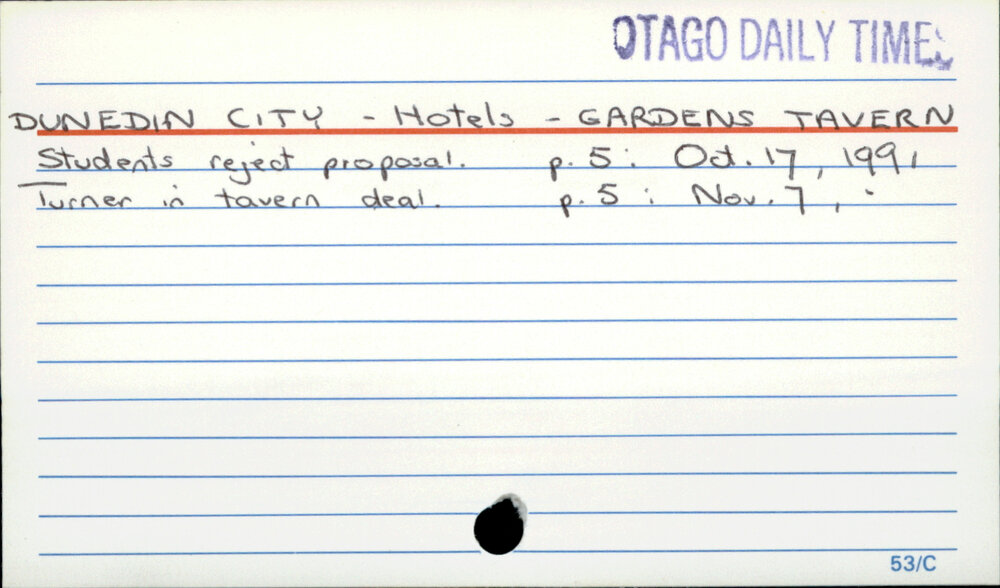 OTAGO DAILY TIMES
DUNEDIN CITY - Hotels - GARDENS TAVERN
Students reject proposal. p. 5 : Oct. 17, 1991
Turner in tavern deal. p. 5 : Nov. 7, "
53/C